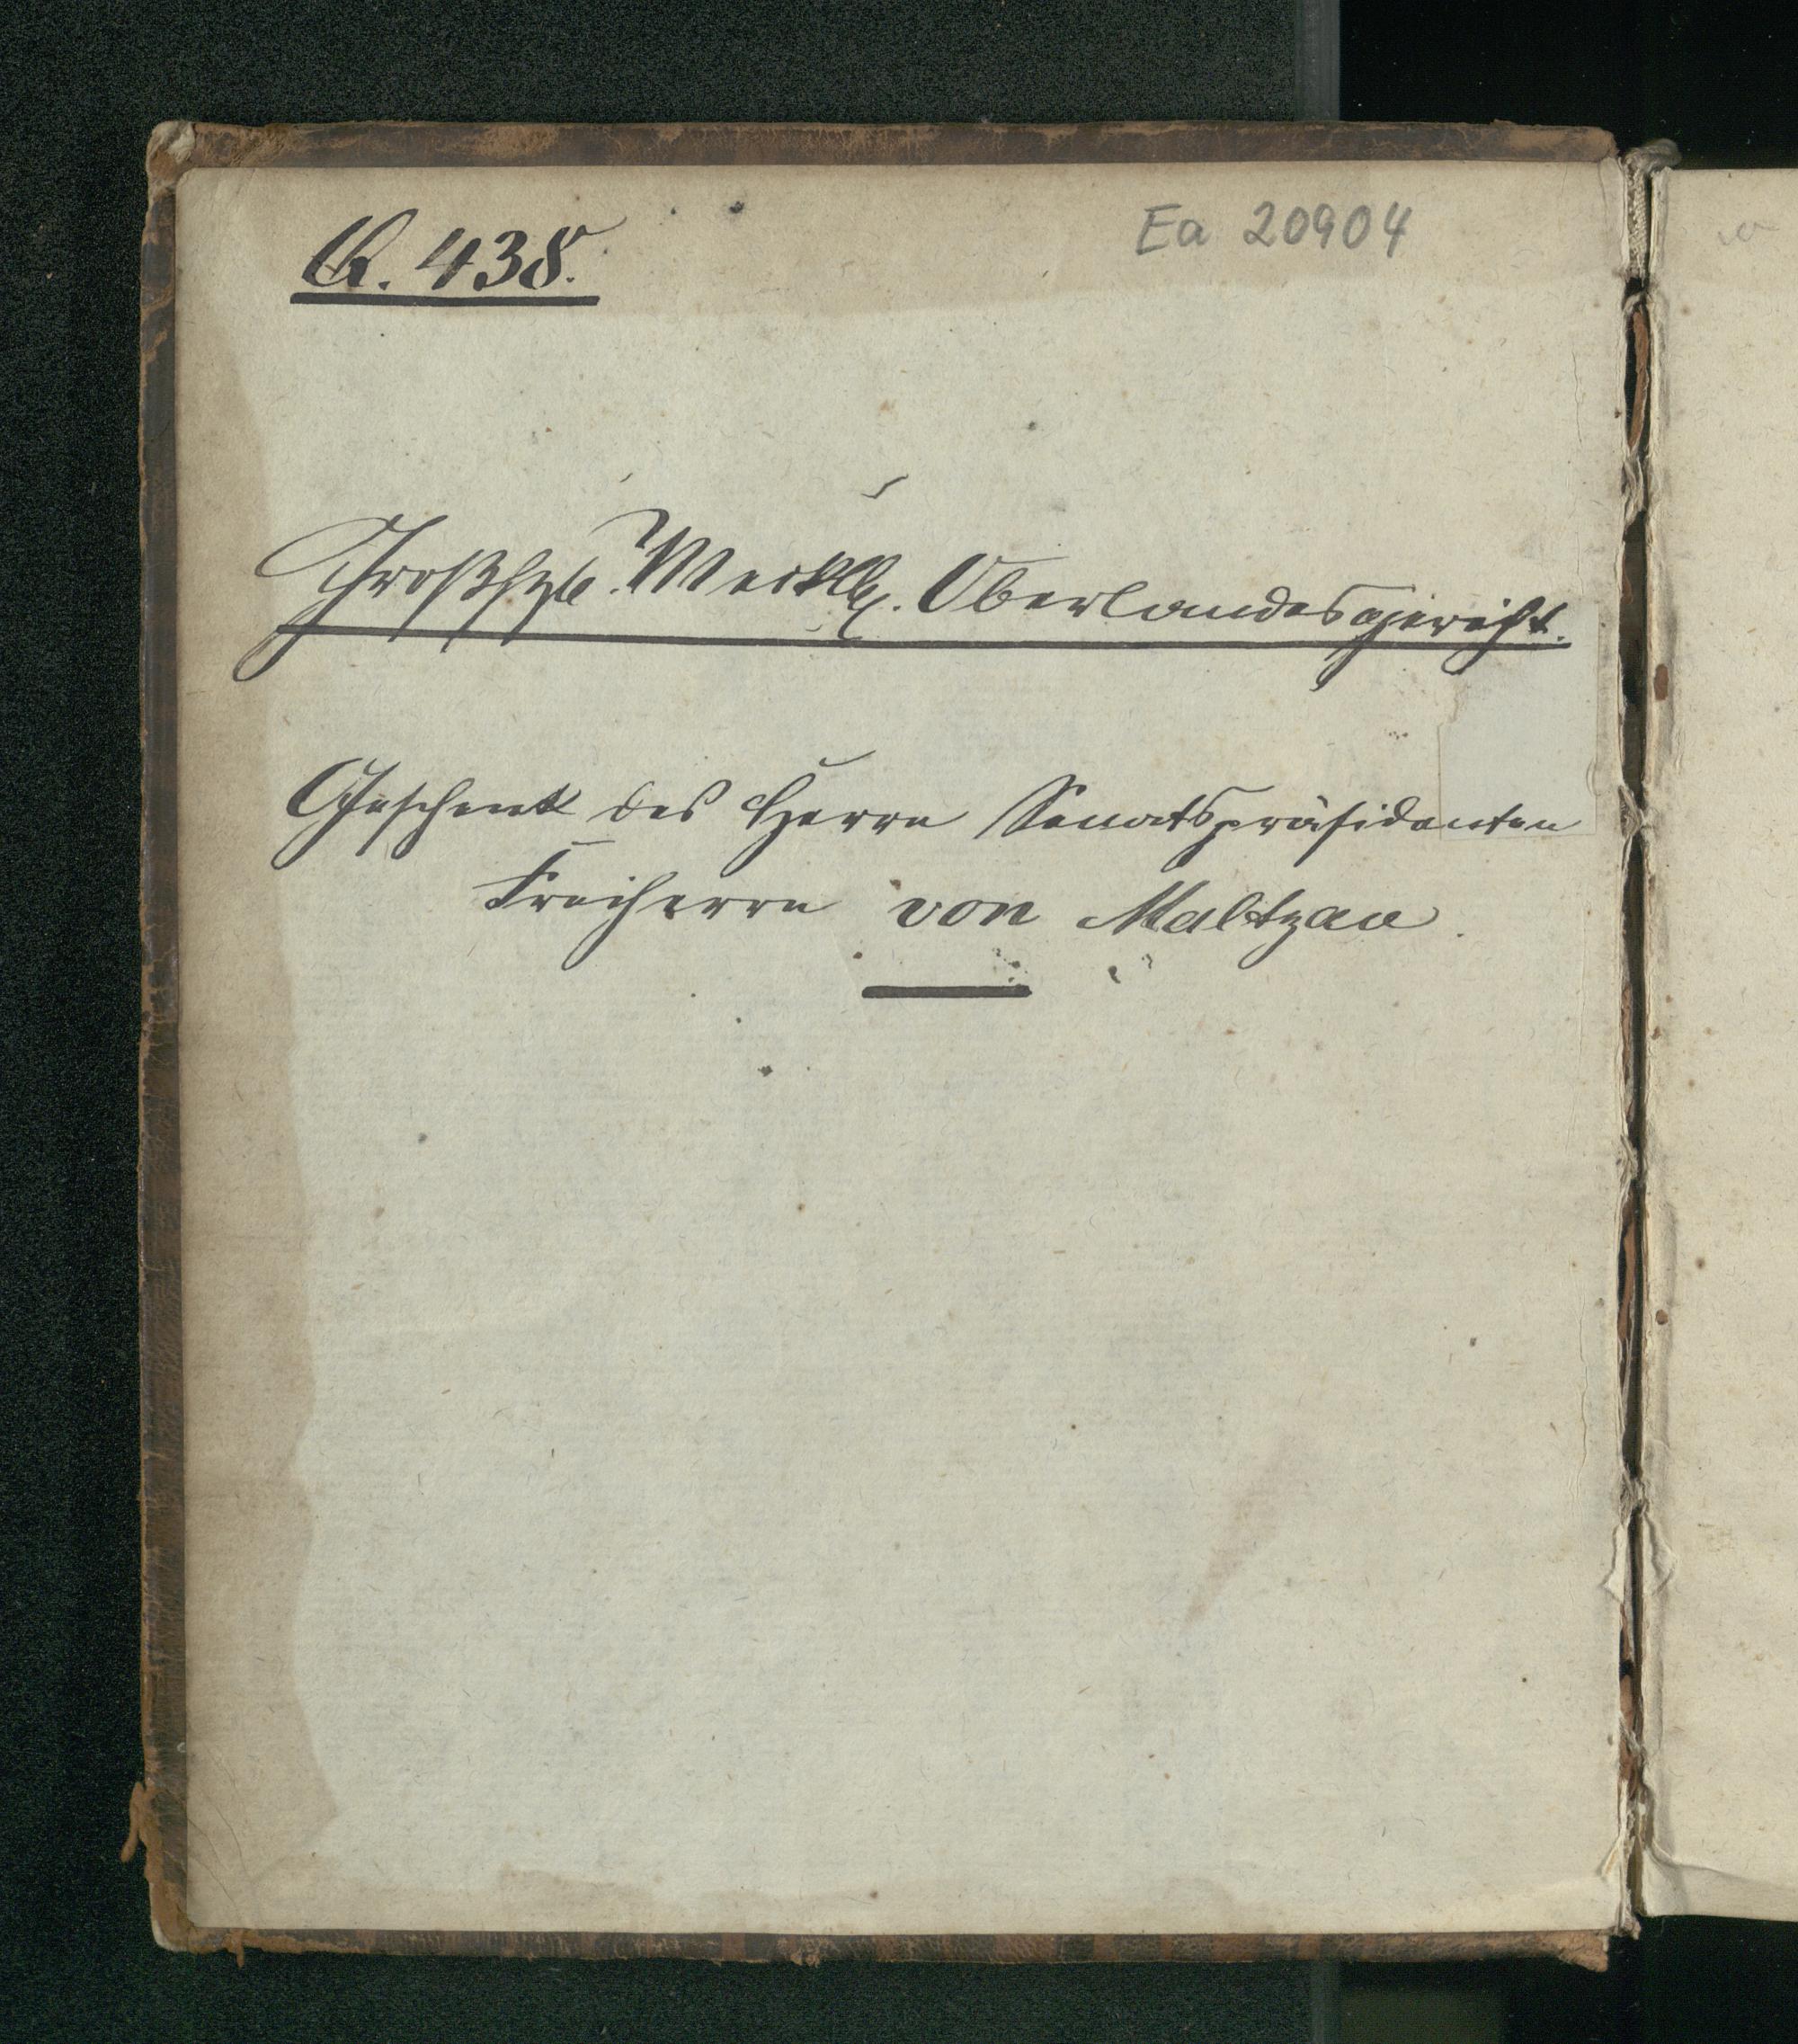 G. 438.
Ea 20904
Großhzl. Mecklb. Oberlandesgericht.
Geschenk des Herrn Senatspräsidenten
Freiherrn von Maltzan.